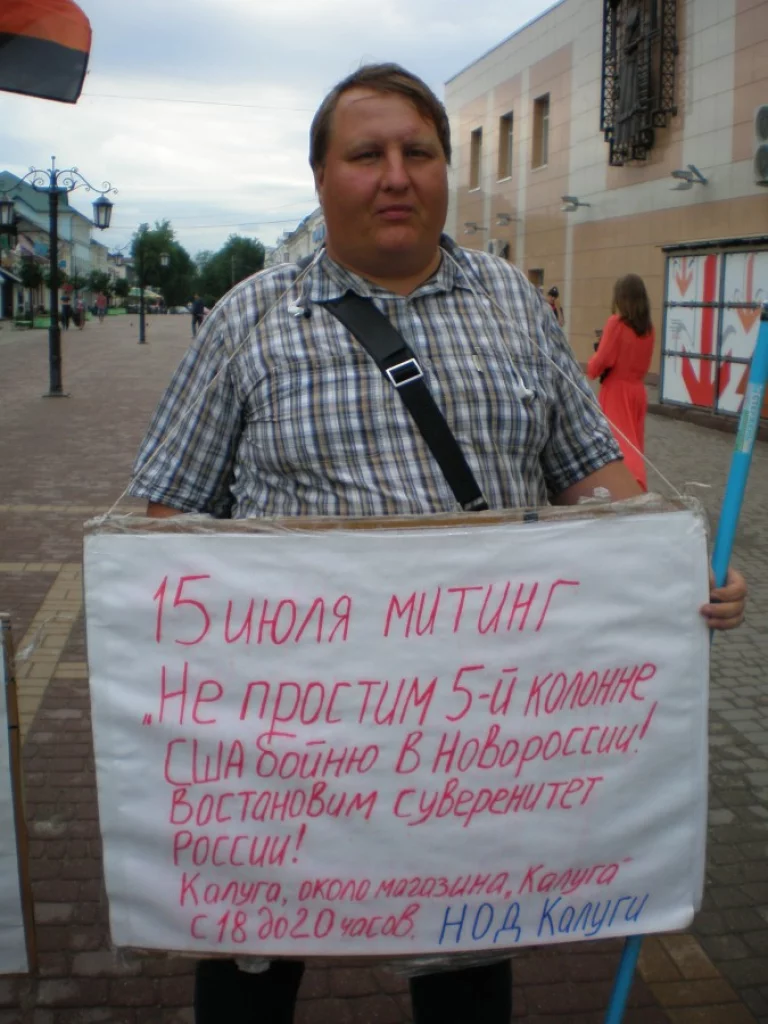 15 июля митинг
„Не простим 5-й колонне
США бойню в Новороссии!
Востановим суверенитет
России!
Калуга, около магазина „Калуга"
с 18 до 20 часов. НОД Калуги